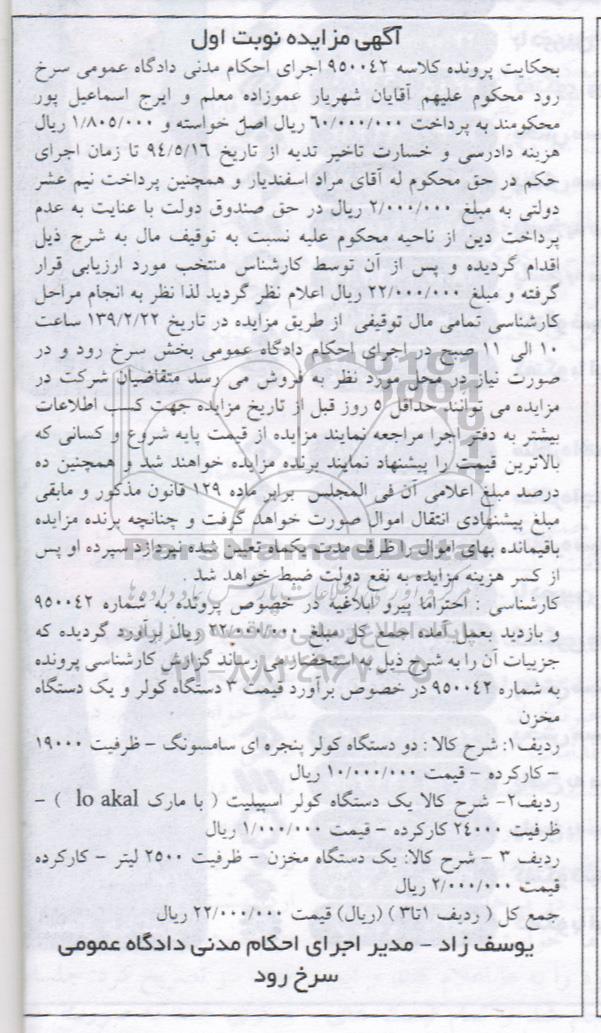 آگهی مزایده نوبت اول
بحکایت پرونده کلاسه ۹۵۰۰۴۲ اجرای احکام مدنی دادگاه عمومی سرخ
رود محکوم علیهم آقایان شهریار عموزاده معلم و ایرج اسماعیل پور
محکومند به پرداخت ۶۰/۰۰۰/۰۰۰ ریال اصل خواسته و ۱/۸۰۵/۰۰۰ ریال
هزینه دادرسی و خسارت تاخیر تدیه از تاریخ ۹۴/۵/۱۶ تا زمان اجرای
حکم در حق محکوم له آقای مراد اسفندیار و همچنین پرداخت نیم عشر
دولتی به مبلغ ۲/۰۰۰/۰۰۰ ریال در حق صندوق دولت با عنایت به عدم
پرداخت دین از ناحیه محکوم علیه نسبت به توقیف مال به شرح ذیل
اقدام گردیده و پس از آن توسط کارشناس منتخب مورد ارزیابی قرار
گرفته و مبلغ ۲۲/۰۰۰/۰۰۰ ریال اعلام نظر گردید لذا نظر به انجام مراحل
کارشناسی تمامی مال توقیفی از طریق مزایده در تاریخ ۱۳۹/۲/۲۲ ساعت
۱۰ الی ۱۱ صبح در اجرای احکام دادگاه عمومی بخش سرخ رود و در
صورت نیاز در محل مورد نظر به فروش می رسد متقاضیان شرکت در
مزایده می توانند حداقل ۵ روز قبل از تاریخ مزایده جهت کسب اطلاعات
بیشتر به دفتر اجرا مراجعه نمایند مزایده از قیمت پایه شروع و کسانی که
بالاترین قیمت را پیشنهاد نمایند برنده مزایده خواهند شد و همچنین ده
درصد مبلغ اعلامی آن فی المجلس برابر ماده ۱۲۹ قانون مذکور و مابقی
مبلغ پیشنهادی انتقال اموال صورت خواهد گرفت و چنانچه برنده مزایده
باقیمانده بهای اموال را ظرف مدت یکماه تعیین شده نپردازد سپرده او پس
از کسر هزینه مزایده به نفع دولت ضبط خواهد شد .
کارشناسی : احتراما پیرو ابلاغیه در خصوص پرونده به شماره ۹۵۰۰۴۲
و بازدید بعمل آمده جمع کل مبلغ ۲۲/۰۰۰/۰۰۰ ریال برآورد گردیده که
جزییات آن را به شرح ذیل به استحضار می رساند گزارش کارشناسی پرونده
به شماره ۹۵۰۰۴۲ در خصوص برآورد قیمت ۳ دستگاه کولر و یک دستگاه
مخزن
ردیف۱: شرح کالا : دو دستگاه کولر پنجره ای سامسونگ – ظرفیت ۱۹۰۰۰
– کارکرده – قیمت ۱۰/۰۰۰/۰۰۰ ریال
ردیف۲- شرح کالا یک دستگاه کولر اسپیلیت ( با مارک lo akal ) –
ظرفیت ۲۴۰۰۰ کارکرده – قیمت ۱/۰۰۰/۰۰۰ ریال
ردیف ۳ – شرح کالا: یک دستگاه مخزن – ظرفیت ۲۵۰۰ لیتر – کارکرده
قیمت ۲/۰۰۰/۰۰۰ ریال
جمع کل ( ردیف ۱تا۳ ) (ریال) قیمت ۲۲/۰۰۰/۰۰۰ ریال
یوسف زاد – مدیر اجرای احکام مدنی دادگاه عمومی
سرخ رود
ParsNamadData